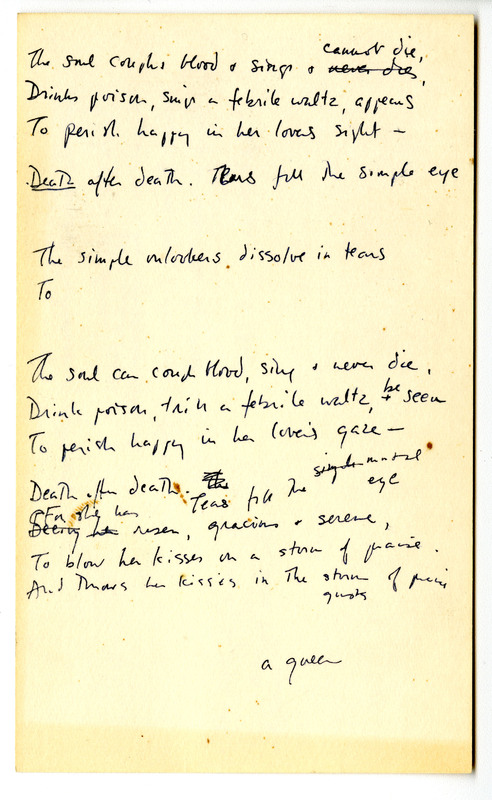 cannot die,
The soul coughs blood & sings & never dies,
Drinks poison, sings a febrile waltz, appears
To perish happy in her lovers sight —
Death after death. Tears fill the simple eye
The simple onlookers dissolve in tears
To
The soul can cough blood, sing & never die,
Drink poison, trill a febrile waltz, & be seen
To perish happy in her lover's gaze —
Death after death. Tears fill the simple mortal eye
For she has
Seeing her risen, gracious & serene,
To blow her kisses on a storm of praise.
And throws her kisses in the storm of praise
gusts
a queen